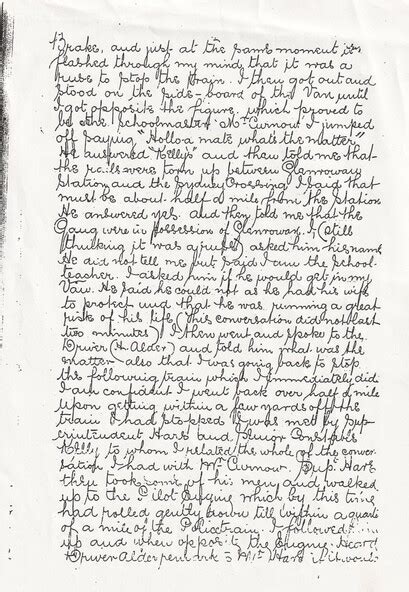 Brake, and just at the same moment it
flashed through my mind that it was a
ruse to stop the train. I then got out and
stood on the side-board of the Van until
I got opposite the figure, which proved to
be the Schoolmaster Mr Curnow. I jumped
off saying "Holloa mate whats the matter"
He answered "Kellys" and then told me that
the rails were torn up between Glenrowan
Station and the Sydney Crossing. I said that
must be about half a mile from the Station
He answered yes. and then told me that the
Gang were in possession of Glenrowan. I (still
thinking it was a ruse) asked him his name
He did not tell me but said I am the School-
teacher. I asked him if he would get in my
Van. He said he could not as he had his wife
to protect and that he was running a great
risk of his life (This conversation did not last
two minutes) I then went and spoke to the
Driver (H. Alder) and told him what was the
matter also that I was going back to stop
the following train which I immediately did
I am confident I went back over half a mile
Upon getting within a few yards off the
train I had stopped I was met by Sup-
erintendent Hare and Senior Constable
Kelly to whom I related the whole of the conver-
sation I had with Mr Curnow. Sup. Hare
then took some of his men and walked
up to the Pilot Engine which by this time
had rolled gently down till within a quarter
of a mile of the Police train. I followed
up and when opposite the Engine heard
Driver Alder remark to Mr Hare it wou